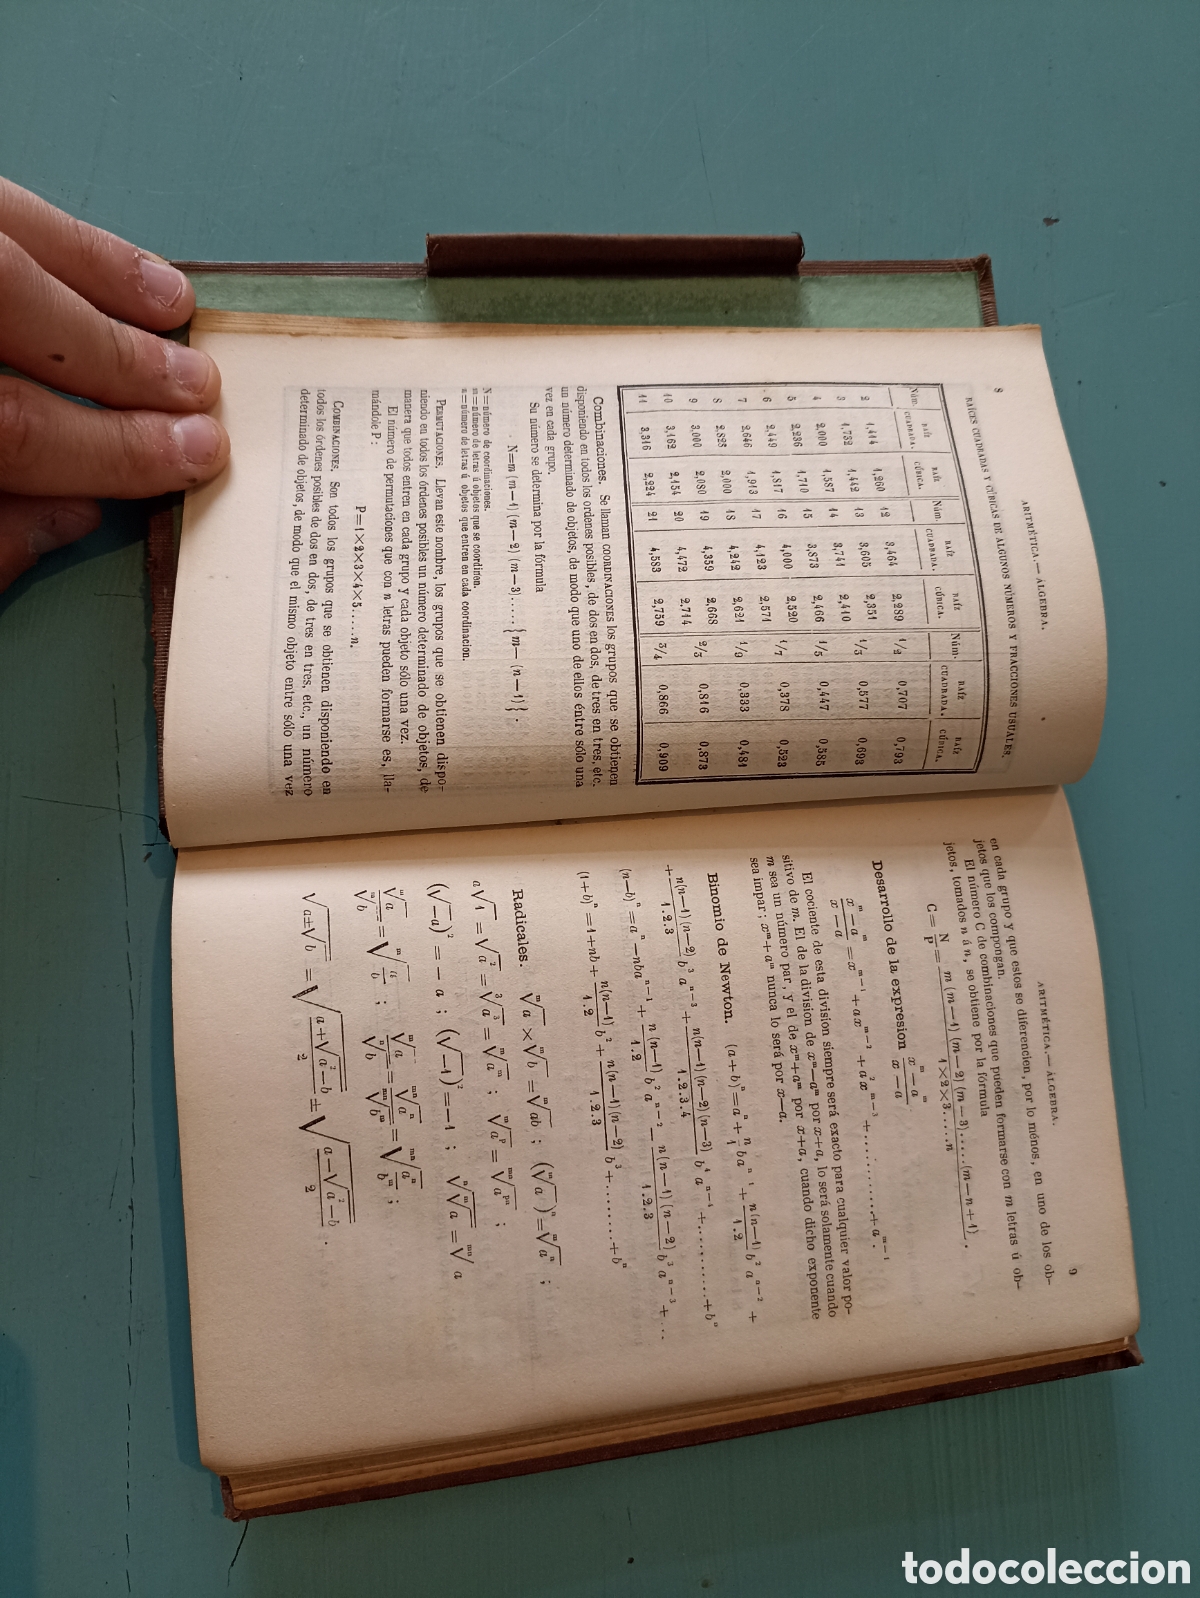 8
ARITMÉTICA.— ÁLGEBRA.
RAÍCES CUADRADAS Y CÚBICAS DE ALGUNOS NÚMEROS Y FRACCIONES USUALES.
Núm. RAÍZ CUADRADA. RAÍZ CÚBICA. Núm. RAÍZ CUADRADA. RAÍZ CÚBICA. Núm. RAÍZ CUADRADA. RAÍZ CÚBICA.
2 1,414 1,260 12 3,464 2,289 1/2 0,707 0,793
3 1,732 1,442 13 3,605 2,351 1/3 0,577 0,693
4 2,000 1,587 14 3,741 2,410 1/5 0,447 0,585
5 2,236 1,710 15 3,873 2,466 1/7 0,378 0,523
6 2,449 1,817 16 4,000 2,520 1/9 0,333 0,481
7 2,646 1,913 17 4,123 2,571 2/3 0,816 0,873
8 2,828 2,000 18 4,242 2,621 3/4 0,866 0,909
9 3,000 2,080 19 4,359 2,668
10 3,162 2,154 20 4,472 2.714
11 3,316 2,224 21 4,583 2,759
Combinaciones. Se llaman COORDINACIONES los grupos que se obtienen
disponiendo en todos los ordenes posibles, de dos en dos, de tres en tres, etc.
un número determinado de objetos, de modo que uno de ellos éntre sólo una
vez en cada grupo.
Su número se determina por la fórmula
N=m(m—1)(m—2)(m—3).....{m—(n—1)}.
N=número de coordinaciones.
m=número de letras ú objetos que se coordinan.
n=número de letras ú objetos que entren en cada coordinacion.
PERMUTACIONES. Llevan este nombre, los grupos que se obtienen dispo-
niendo en todos los órdenes posibles un número determinado de objetos, de
manera que todos entren en cada grupo y cada objeto sólo una vez.
El número de permutaciones que con n letras pueden formarse es, lla-
mándole P:
P=1×2×3×4×5.....n.
COMBINACIONES. Son todos los grupos que se obtienen disponiendo en
todos los órdenes posibles de dos en dos, de tres en tres, etc., un número
determinado de objetos, de modo que el mismo objeto entre sólo una vez
ARITMÉTICA.— ÁLGEBRA.
9
en cada grupo y que estos se diferencien, por lo ménos, en uno de los ob-
jetos que los compongan.
El número C de combinaciones que pueden formarse con m letras ú ob-
jetos, tomados n á n, se obtiene por la fórmula
C = N/P = m(m—1)(m—2)(m—3).....(m—n+1) / 1×2×3.....n .
Desarrollo de la expresion (xᵐ—aᵐ)/(x—a)
(xᵐ—aᵐ)/(x—a) = xᵐ⁻¹+axᵐ⁻²+a²xᵐ⁻³+..........+aᵐ⁻¹.
El cociente de esta division siempre será exacto para cualquier valor po-
sitivo de m. El de la division de xᵐ—aᵐ por x+a, lo será solamente cuando
m sea un número par, y el de xᵐ+aᵐ por x+a, cuando dicho exponente
sea impar; xᵐ+aᵐ nunca lo será por x—a.
Binomio de Newton. (a+b)ⁿ=aⁿ+n/1 baⁿ⁻¹+n(n—1)/1.2 b²aⁿ⁻²+
+n(n—1)(n—2)/1.2.3 b³aⁿ⁻³+n(n—1)(n—2)(n—3)/1.2.3.4 b⁴aⁿ⁻⁴+..........+bⁿ
(n—b)ⁿ=aⁿ—nbaⁿ⁻¹+n(n—1)/1.2 b²aⁿ⁻²—n(n—1)(n—2)/1.2.3 b³aⁿ⁻³+...
(1+b)ⁿ=1+nb+n(n—1)/1.2 b²+n(n—1)(n—2)/1.2.3 b³+........+bⁿ
Radicales. ᵐ√a×ᵐ√b=ᵐ√ab; (ᵐ√a)ⁿ=ᵐ√aⁿ;
a√1=√a²=³√a³=ᵐ√aᵐ; ᵐ√aᵖ=ᵐⁿ√aᵖⁿ;
(√—a)²=—a; (√—1)²=—1; ⁿ√ᵐ√a=ᵐⁿ√a
ᵐ√a/ᵐ√b=ᵐ√(a/b); ᵐ√a/ⁿ√b=ᵐⁿ√aⁿ/ᵐⁿ√bᵐ=ᵐⁿ√(aⁿ/bᵐ);
√(a±√b)=√((a+√(a²—b))/2)±√((a—√(a²—b))/2).
todocoleccion